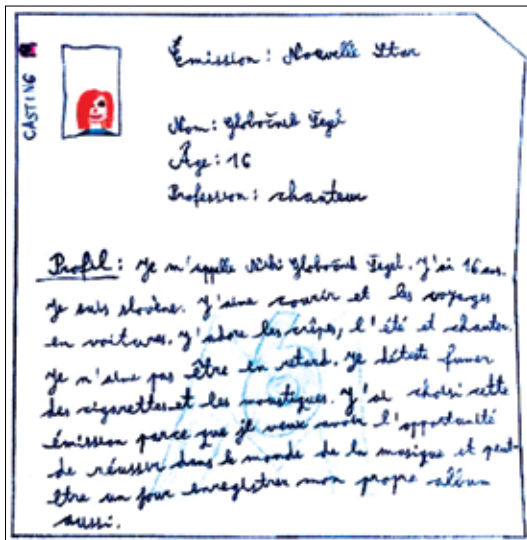 CASTING
Émission : Nouvelle Star
Nom : Globočnik Žegl
Âge : 16
Profession : chanteur
Profil : Je m'appelle Niki Globočnik Žegl. J'ai 16 ans.
Je suis slovène. J'aime courir et les voyages
en voitures. J'adore les crêpes, l'été et chanter.
Je n'aime pas être en retard. Je déteste fumer
des cigarettes et les moustiques. J'ai choisi cette
émission parce que je veux avoir l'opportunité
de réussir dans le monde de la musique et peut-
être un jour enregistrer mon propre album
aussi.